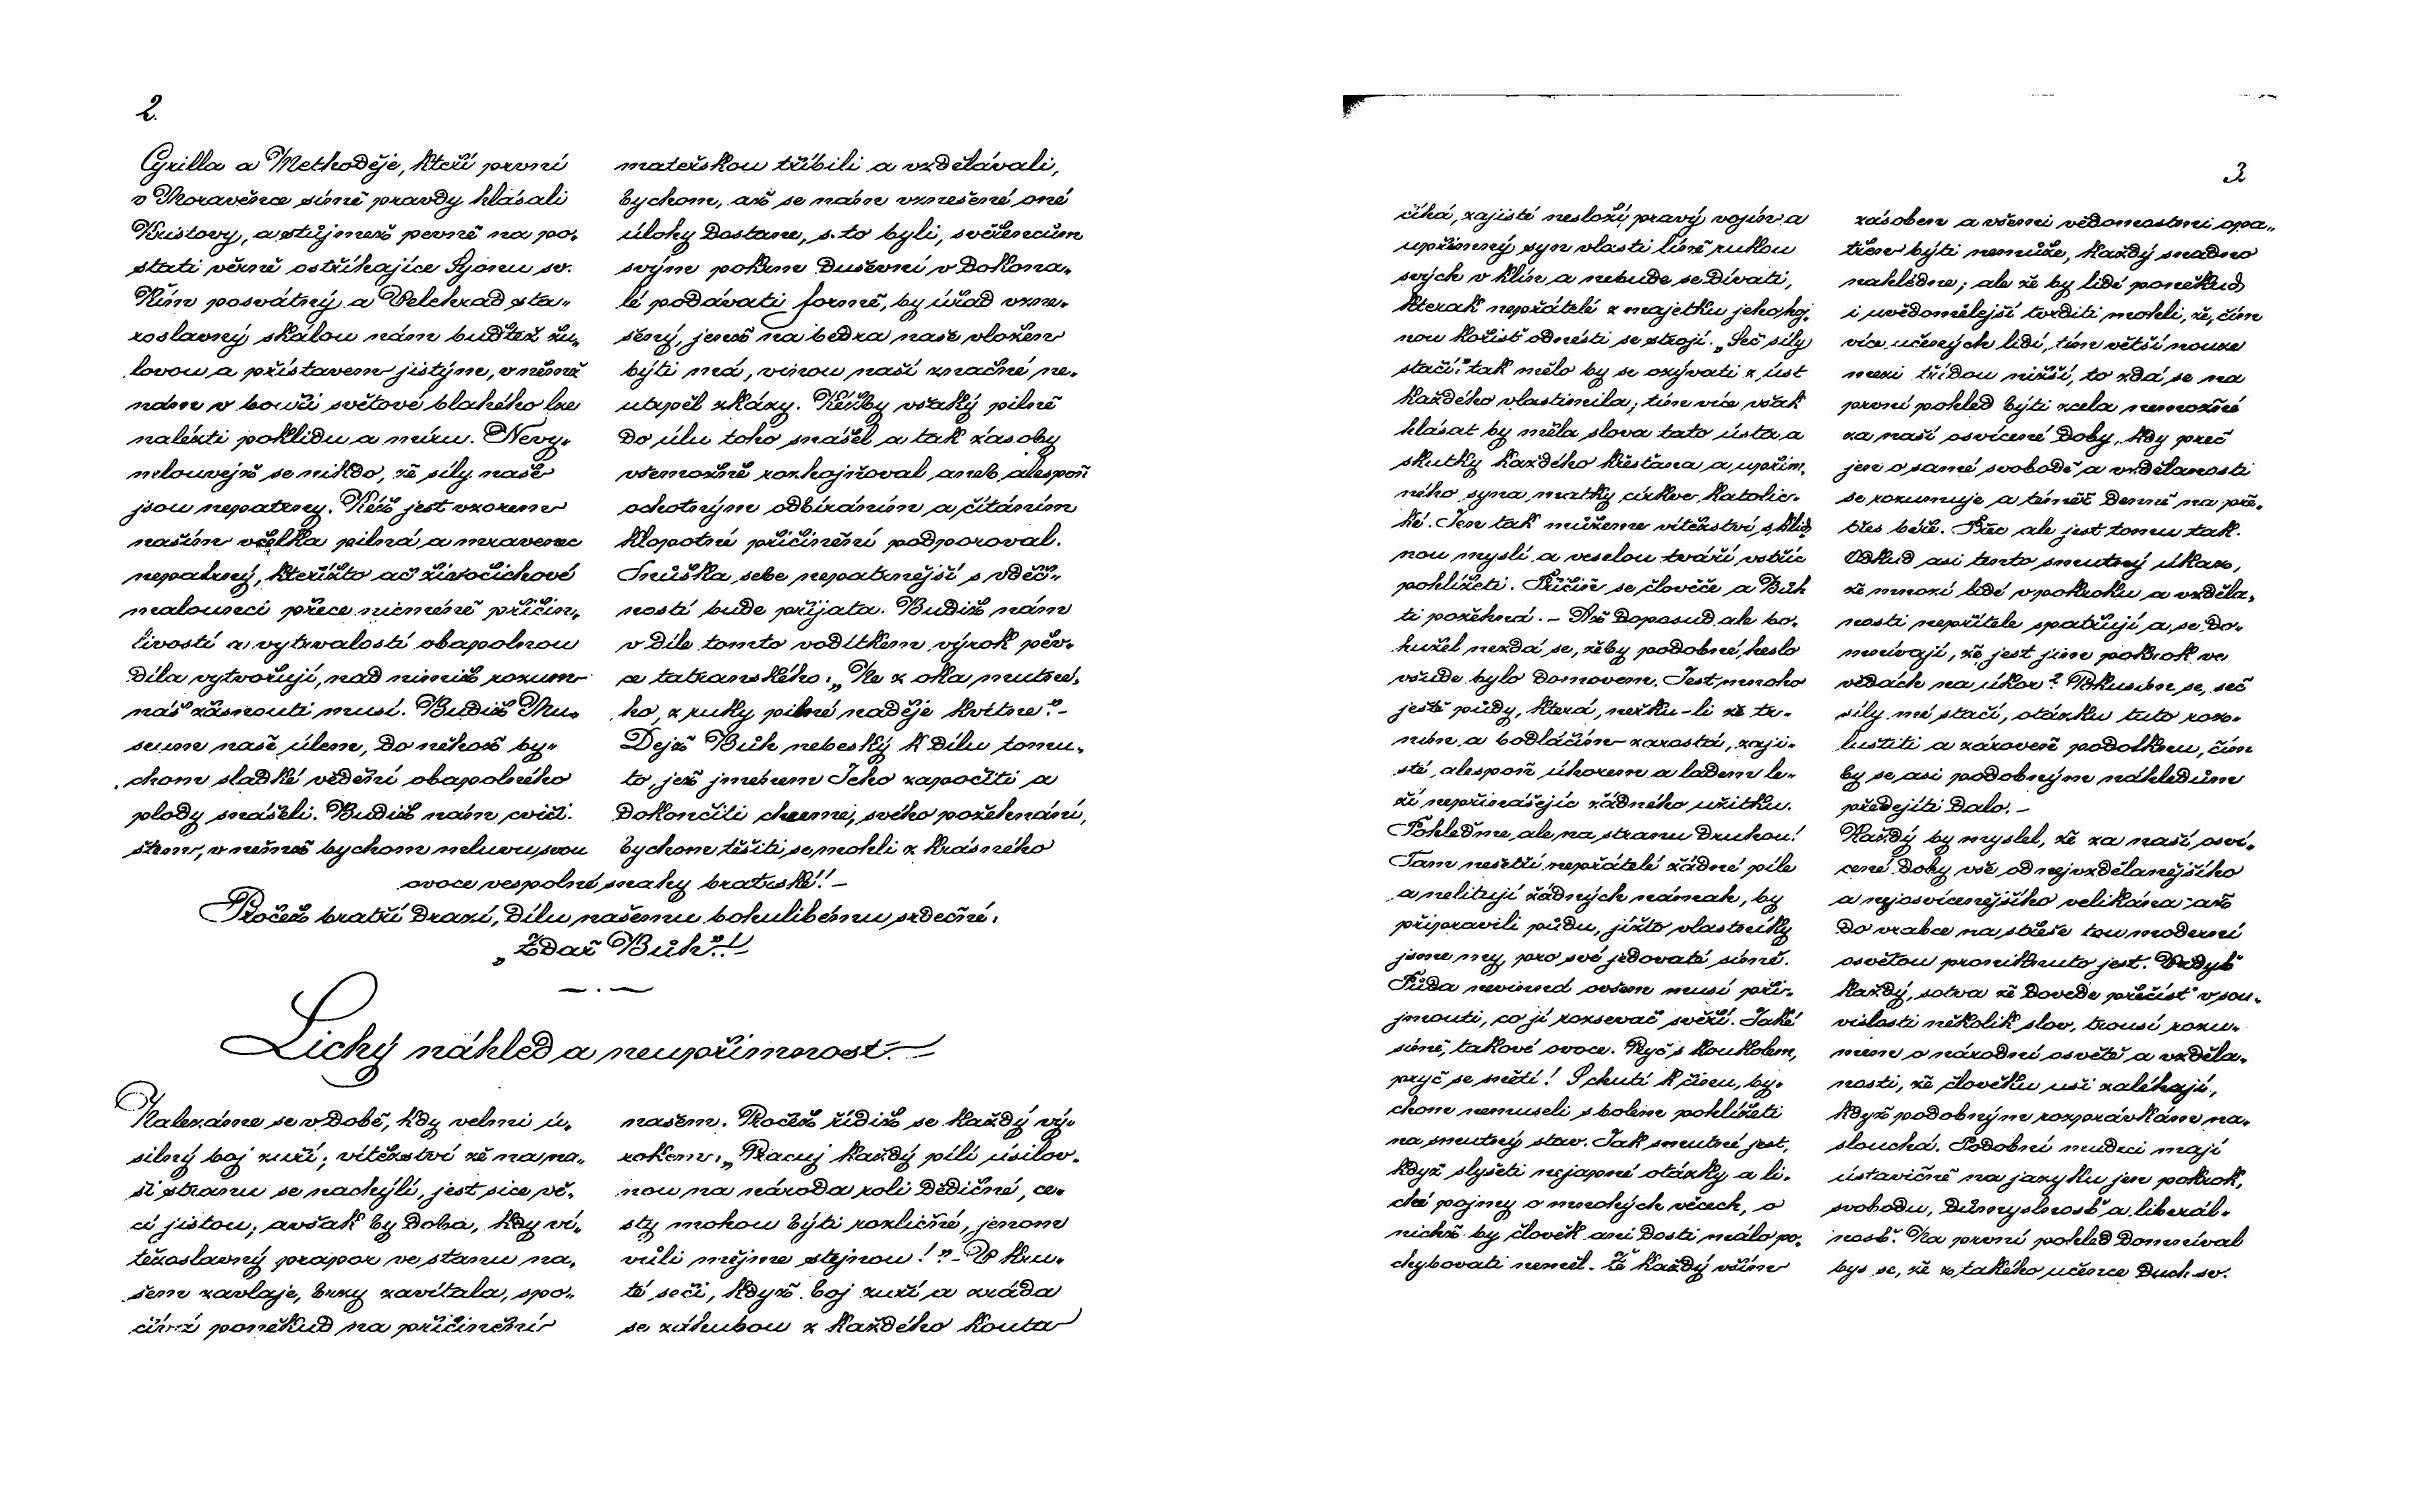 2.
Cyrilla a Methoděje, kteří první
v Moravěnce símě pravdy hlásali
Kristovy, a stůjmež pevně na po-
stati věrně ostříhajíce Syonu sv.
Řím posvátný a Velehrad sta-
roslavný skálou nám buďtež žu-
lovou a přístavem jistým, v němž
nám v bouři světové blahého lze
nalézti poklidu a míru. Nevy-
mlouvejž se nikdo, že síly naše
jsou nepatrny. Kéž jest vzorem
naším včelka pilná a mravenec
nepatrný, kteřížto ač živočichové
malounci přece nicméně přičin-
livostí a vytrvalostí obapolnou
díla vytvořují, nad nimiž rozum
náš žasnouti musí. Budiž Mu-
seum naše úlem, do něhož by-
chom sladké vědění obapolného
plody snášeli. Budiž nám cviči-
štěm, v němž bychom mluvu svou
mateřskou tříbili a vzdělávali,
bychom, až se nám vznešené oné
úlohy dostane, s. to byli, svěřencům
svým pokrm duševní v dokona-
lé podávati formě, by úřad vzne-
šený, jenž na bedra naše vložen
býti má, vinou naší značné ne-
utrpěl zkázy. Kéžby všaký pilně
do úlu toho snášel a tak zásoby
všemožně rozhojňoval aneb alespoň
ochotným odbíráním a čítáním
klopotné přičinění podporoval.
Snůška sebe nepatrnější s vděč-
ností bude přijata. Budiž nám
v díle tomto vodítkem výrok pěv-
ce tatranského: „Ne z oka mutné-
ho, z ruky pilné naděje kvitne".-
Dejž Bůh nebeský k dílu tomu-
to, jež jmenem Jeho započíti a
dokončiti chceme, svého požehnání,
bychom těšiti se mohli z krásného
ovoce vespolné snahy bratrské! -
Pročež bratří drazí, dílu našemu bohulibému srdečné:
„Zdař Bůh"! -
Lichý náhled a neupřímnost. -
Nalezáme se v době, kdy velmi ú-
silný boj zuří; vítězství že na na-
ši stranu se nachýlí, jest sice vě-
cí jistou; avšak by doba, kdy ví-
tězoslavný prapor ve stanu na-
šem zavlaje, brzy zavítala, spo-
čívá poněkud na přičinění
našem. Pročež řídiž se každý vý-
rokem: „Pracuj každý pílí úsilov-
nou na národa roli dědičné, ce-
sty mohou býti rozličné, jenom
vůli mějme stejnou!" - V kru-
té seči, když boj zuří a zráda
se záhubou z každého kouta
3
číhá, zajisté nesloží pravý vojín a
upřímný syn vlasti líně rukou
svých v klín a nebude se dívati,
kterak nepřátelé z majetku jeho hoj-
nou kořisť odnésti se strojí. „Seč síly
stačí" tak mělo by se ozývati z úst
každého vlastimila; tím více však
hlásat by měla slova tato ústa a
skutky každého křesťana a upřím-
ného syna matky církve katolic-
ké. Jen tak můžeme vítězství s klid-
nou myslí a veselou tváří vstříc
pohlížeti. Přičiň se člověče a Bůh
ti požehná. - Až doposud ale bo-
hužel nezdá se, žeby podobné heslo
všude bylo domovem. Jest mnoho
ještě půdy, která, neřku-li že tr-
ním a bodláčím zarostá, zaji-
sté alespoň úhorem a ladem le-
ží nepřinášejíc žádného užitku.
Pohleďme ale na stranu druhou!
Tam nešetří nepřátelé žádné píle
a nelitují žádných námah, by
připravili půdu, jížto vlastníky
jsme my, pro své jedovaté símě.
Půda nevinná ovšem musí při-
jmouti, co jí rozsevač svěří. Jaké
símě, takové ovoce. Pryč s koukolem,
pryč se smětí! S chutí k činu, by-
chom nemuseli s bolem pohlížeti
na smutný stav. Jak smutné jest,
když slyšeti nejapné otázky a li-
ché pojmy o mnohých věcech, o
nichž by člověk ani dosti málo po-
chybovati neměl. Že každý vším
zásoben a všemi vědomostmi opa-
třen býti nemůže, každý snadno
nahlédne; ale že by lidé poněkud
i uvědomělejší tvrditi mohli, že, čím
více učených lidí, tím větší nouze
mezi třídou nižší, to zdá se na
první pohled býti zcela nemožné
za naší osvícené doby, kdy přec
jen o samé svobodě a vzdělanosti
se rozumuje a téměř denně na pře-
třes béře. Přec ale jest tomu tak.
Odkud asi tento smutný úkaz,
že mnozí lidé v pokroku a vzděla-
nosti nepřítele spatřují a se do-
mnívají, že jest jim pokrok ve
vědách na úkor? Pokusím se, seč
síly mé stačí, otázku tuto roz-
luštiti a zároveň podotknu, čím
by se asi podobným náhledům
předejíti dalo. -
Každý by myslel, že za naší osví-
cené doby vše od nejvzdělanějšího
a nejosvícenějšího velikána až
do vrabce na střeše tou moderní
osvětou proniknuto jest. Vždyť
každý, sotva že dovede přečíst v sou-
vislosti několik slov, trousí rozu-
mem o národní osvětě a vzděla-
nosti, že člověku uši zaléhají,
když podobným rozprávkám na-
slouchá. Podobní mudrci mají
ústavičně na jazyku jen pokrok,
svobodu, důmyslnosť a liberál-
nosť. Na první pohled domníval
bys se, že z takého učence Duch sv.